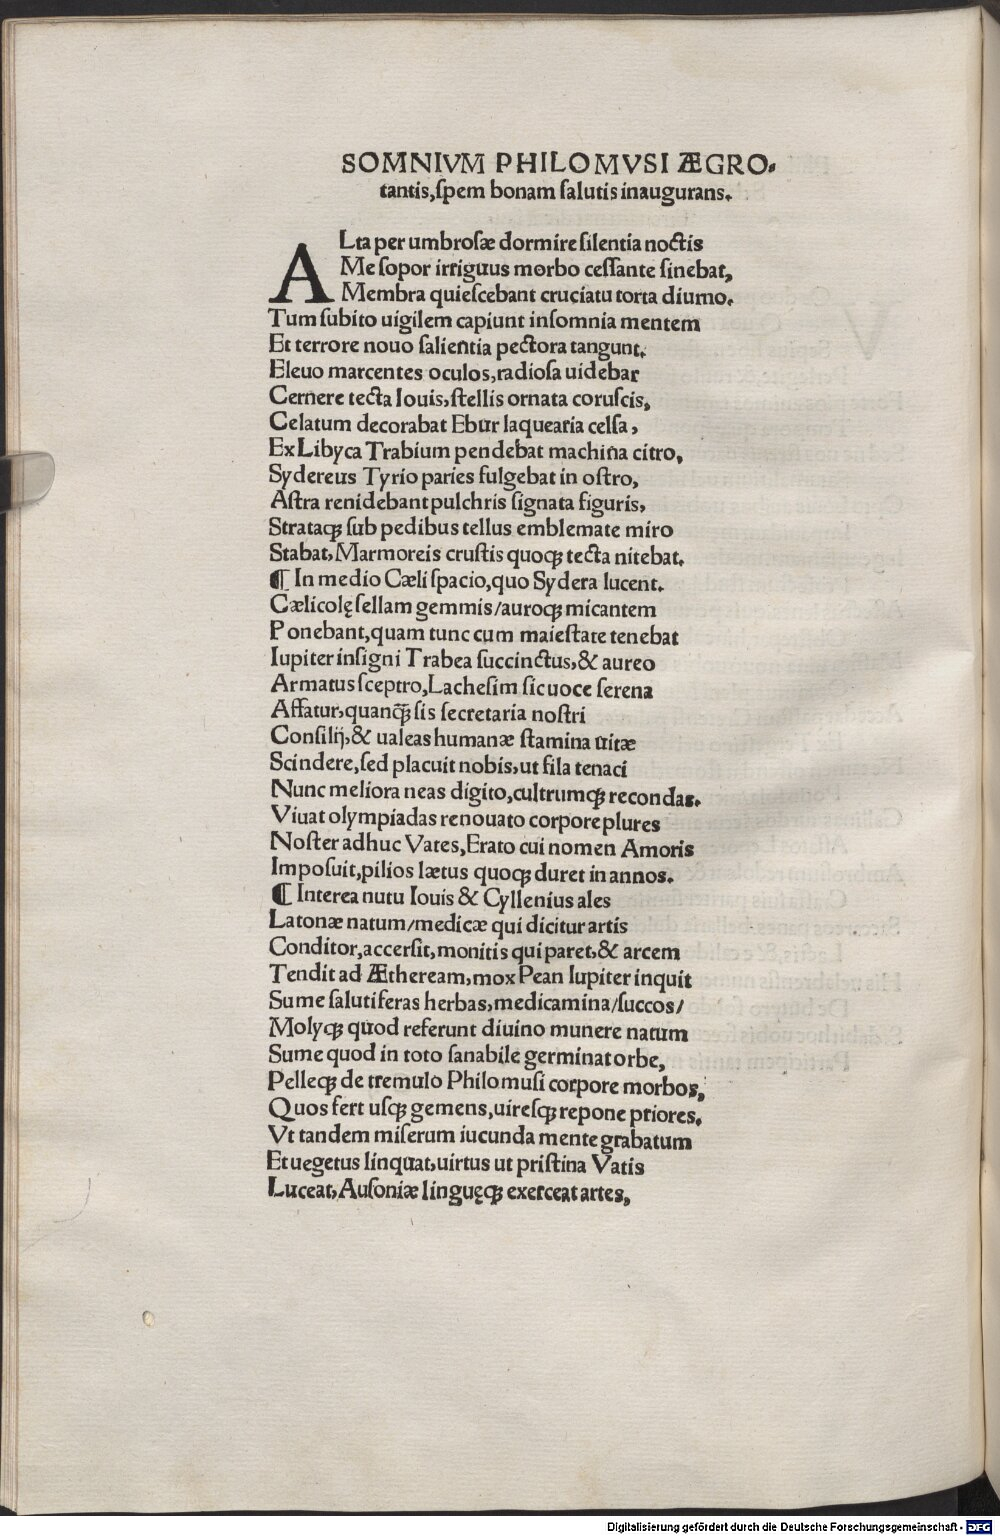 SOMNIVM PHILOMVSI ÆGRO-
tantis, ſpem bonam ſalutis inaugurans.
ALta per umbroſæ dormire ſilentia noctis
Me ſopor irriguus morbo ceſſante ſinebat,
Membra quieſcebant cruciatu torta diurno.
Tum ſubito uigilem capiunt inſomnia mentem
Et terrore nouo ſalientia pectora tangunt.
Eleuo marcentes oculos, radioſa uidebar
Cernere tecta Iouis, ſtellis ornata coruſcis,
Celatum decorabat Ebur laquearia celſa,
Ex Libyca Trabium pendebat machina citro,
Sydereus Tyrio paries fulgebat in oſtro,
Aſtra renidebant pulchris ſignata figuris,
Strataqꝫ ſub pedibus tellus emblemate miro
Stabat, Marmoreis cruſtis quoqꝫ tecta nitebat.
¶ In medio Cæli ſpacio, quo Sydera lucent.
Cælicolę ſellam gemmis/auroqꝫ micantem
Ponebant, quam tunc cum maieſtate tenebat
Iupiter inſigni Trabea ſuccinctus, & aureo
Armatus ſceptro, Lacheſim ſic uoce ſerena
Affatur, quanqꝫ̃ ſis ſecretaria noſtri
Conſilij, & ualeas humanæ ſtamina uitæ
Scindere, ſed placuit nobis, ut fila tenaci
Nunc meliora neas digito, cultrumqꝫ recondas.
Viuat olympiadas renouato corpore plures
Noſter adhuc Vates, Erato cui nomen Amoris
Impoſuit, pilios lætus quoqꝫ duret in annos.
¶ Interea nutu Iouis & Cyllenius ales
Latonæ natum/medicæ qui dicitur artis
Conditor, accerſit, monitis qui paret, & arcem
Tendit ad Ætheream, mox Pean Iupiter inquit
Sume ſalutiferas herbas, medicamina/ſuccos/
Molyqꝫ quod referunt diuino munere natum
Sume quod in toto ſanabile germinat orbe,
Pelleqꝫ de tremulo Philomuſi corpore morbos,
Quos fert uſqꝫ gemens, uireſqꝫ repone priores.
Vt tandem miſerum iucunda mente grabatum
Et uegetus linquat, uirtus ut priſtina Vatis
Luceat, Auſoniæ linguęqꝫ exerceat artes,
Digitalisierung gefördert durch die Deutsche Forschungsgemeinschaft - DFG